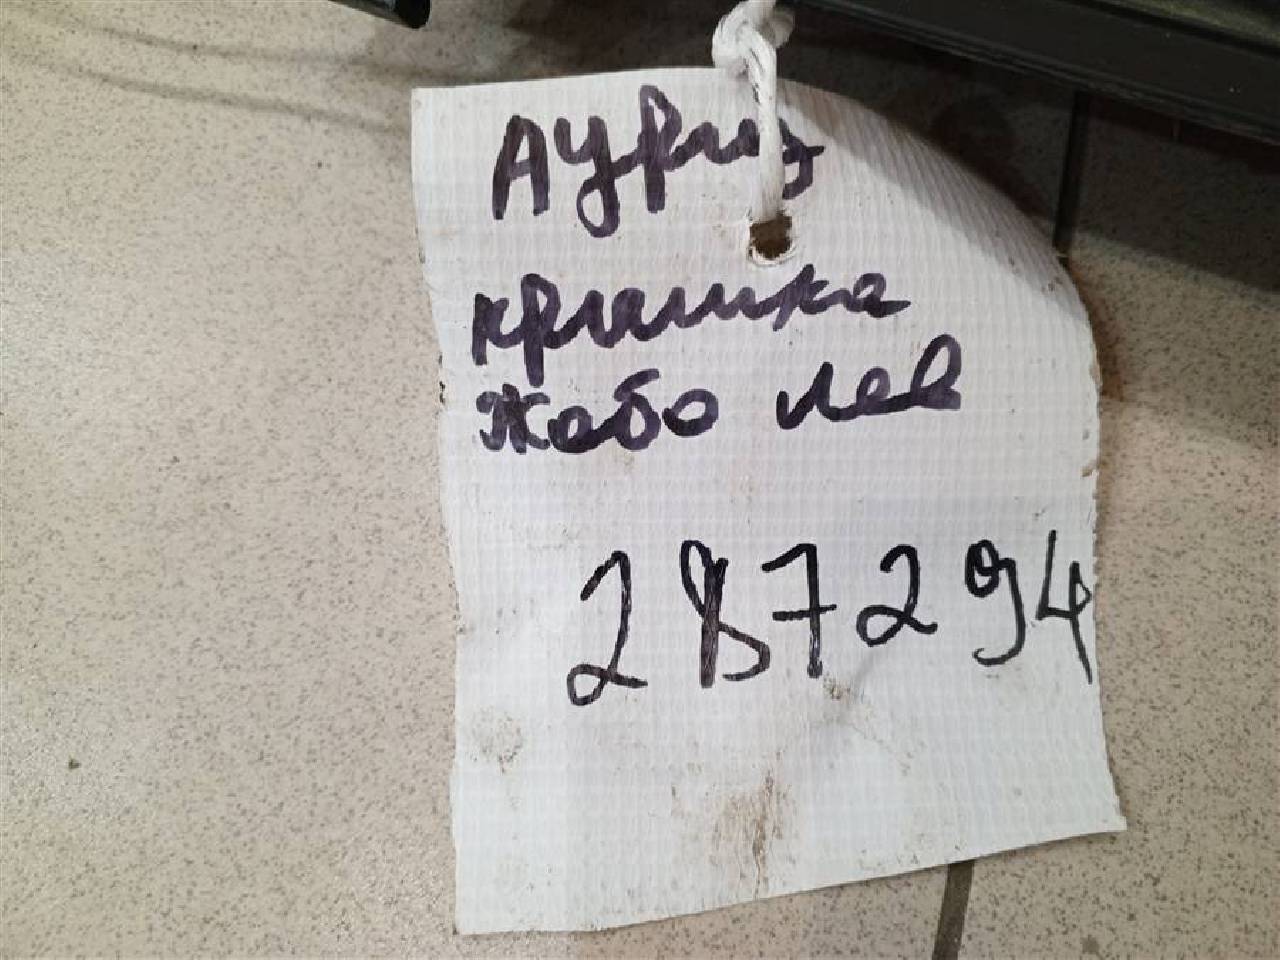 Аурис
крышка
жабо лев
287294